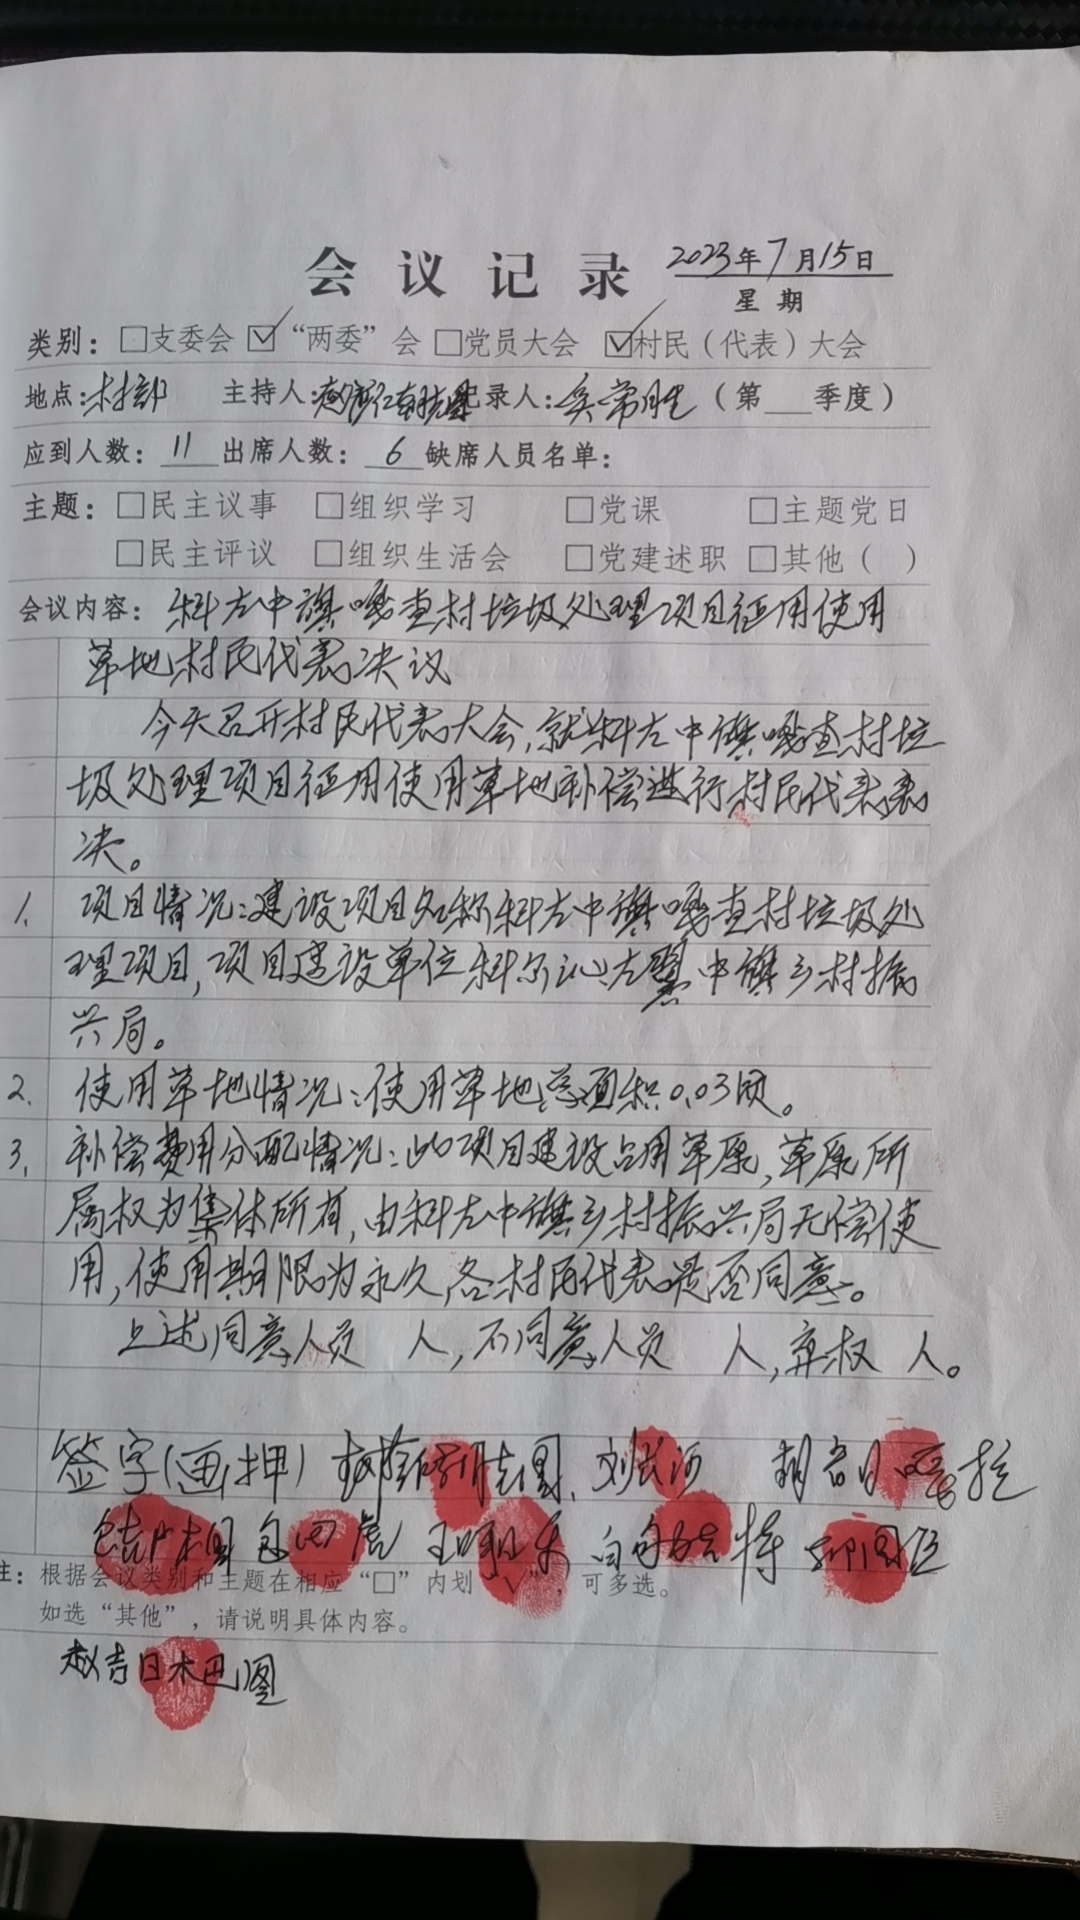 会议记录 2023年7月15日
星期
类别：□支委会 ☑“两委”会 □党员大会 ☑村民（代表）大会
地点：村部 主持人： 记录人：吴常胜（第___季度）
应到人数：11 出席人数：6 缺席人员名单：
主题：□民主议事 □组织学习 □党课 □主题党日
□民主评议 □组织生活会 □党建述职 □其他（ ）
会议内容：科左中旗嘎查村垃圾处理项目征用使用
草地村民代表决议
今天召开村民代表大会，就科左中旗嘎查村垃
圾处理项目征用使用草地补偿进行村民代表表
决。
1. 项目情况：建设项目名称科左中旗嘎查村垃圾处
理项目，项目建设单位科尔沁左翼中旗乡村振
兴局。
2. 使用草地情况：使用草地总面积0.03顷。
3. 补偿费用分配情况：此项目建设占用草原，草原所
属权为集体所有，由科左中旗乡村振兴局无偿使
用，使用期限为永久，各村民代表是否同意。
上述同意人员 人，不同意人员 人，弃权 人。
签字（画押） 刘长河
包四虎
注：根据会议类别和主题在相应“□”内划“√”，可多选。
如选“其他”，请说明具体内容。
赵吉日木巴图